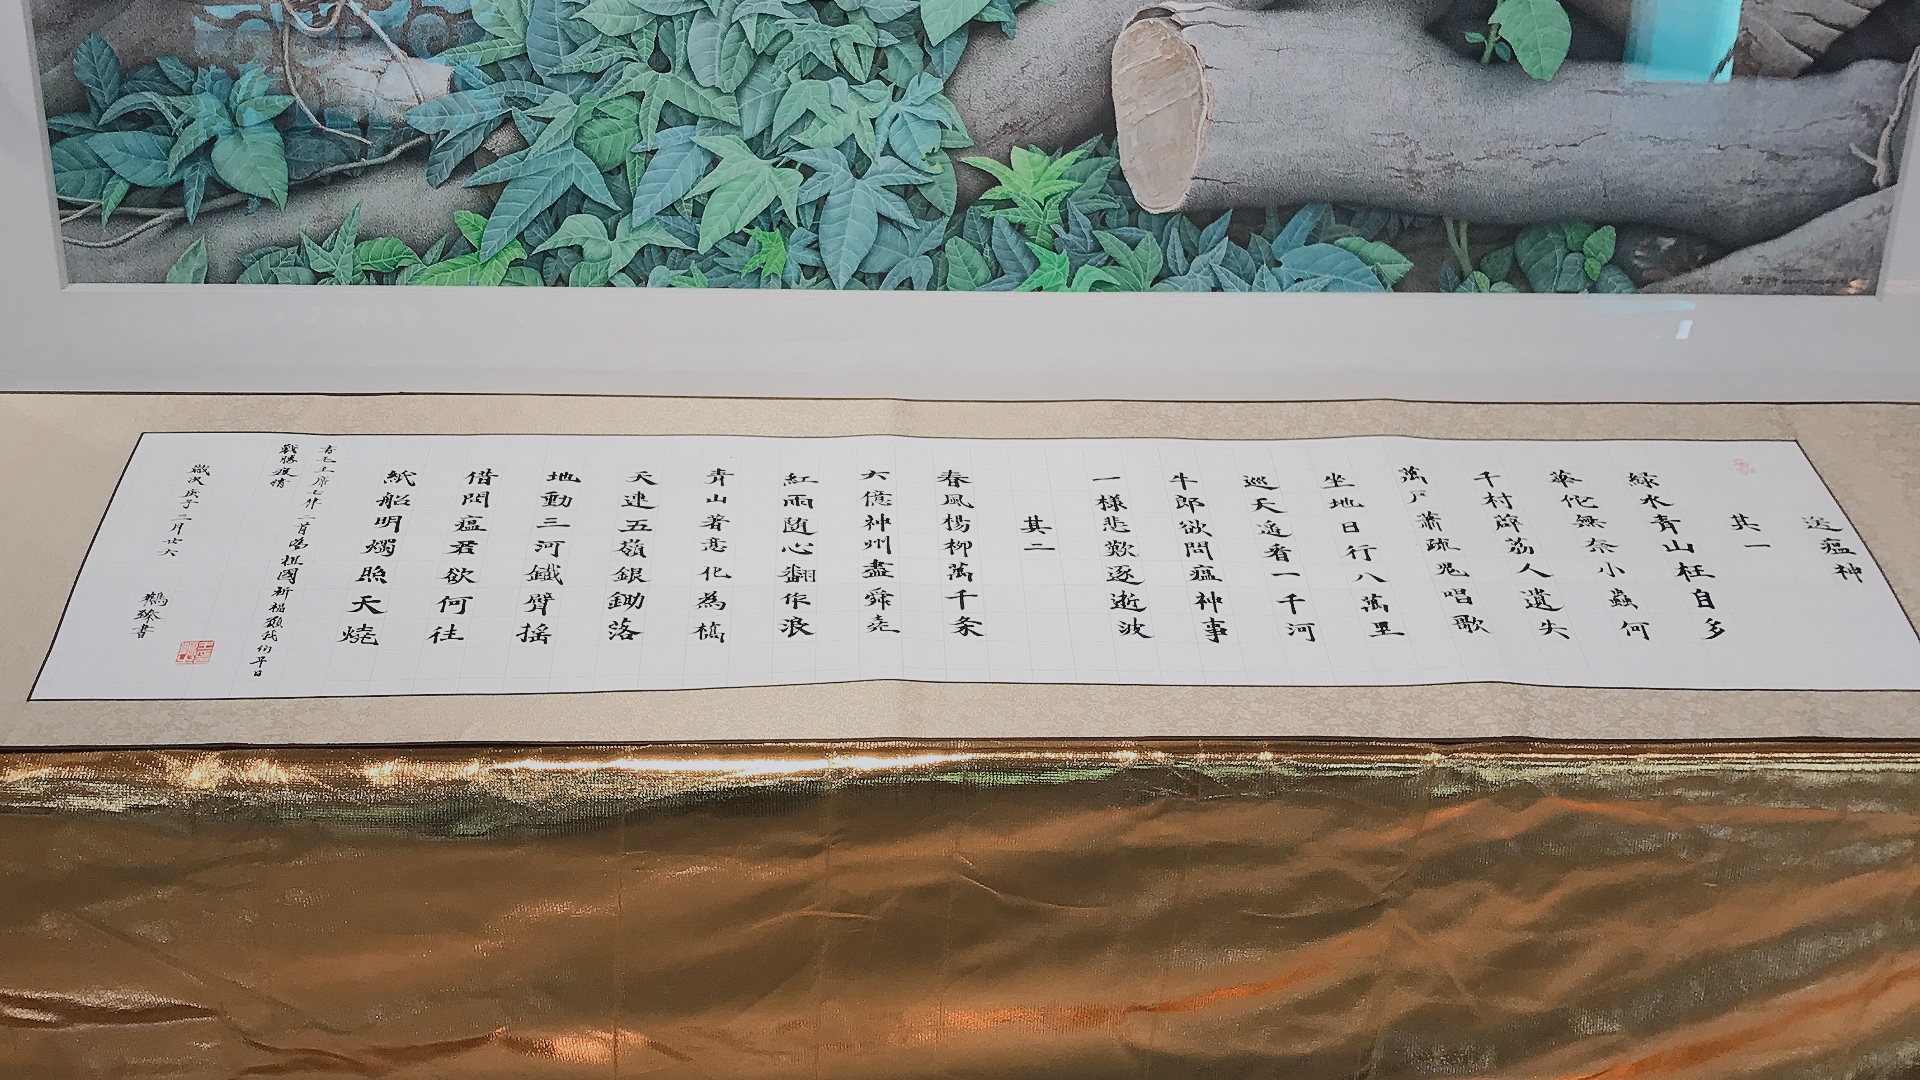 送瘟神
其一
緑水青山枉自多
華佗無奈小蟲何
千村薜荔人遺失
萬戶蕭疏鬼唱歌
坐地日行八萬里
巡天遥看一千河
牛郎欲問瘟神事
一樣悲歎逐逝波
其二
春風楊柳萬千条
六億神州盡舜尭
紅雨随心翻作浪
青山著意化為橋
天連五嶺銀鋤落
地動三河鐵臂摇
借問瘟君欲何往
紙船明燭照天燒
書毛主席七律二首為祖國祈福願我们早日
戰勝疫情
歲次庚子二月廿六
臻書